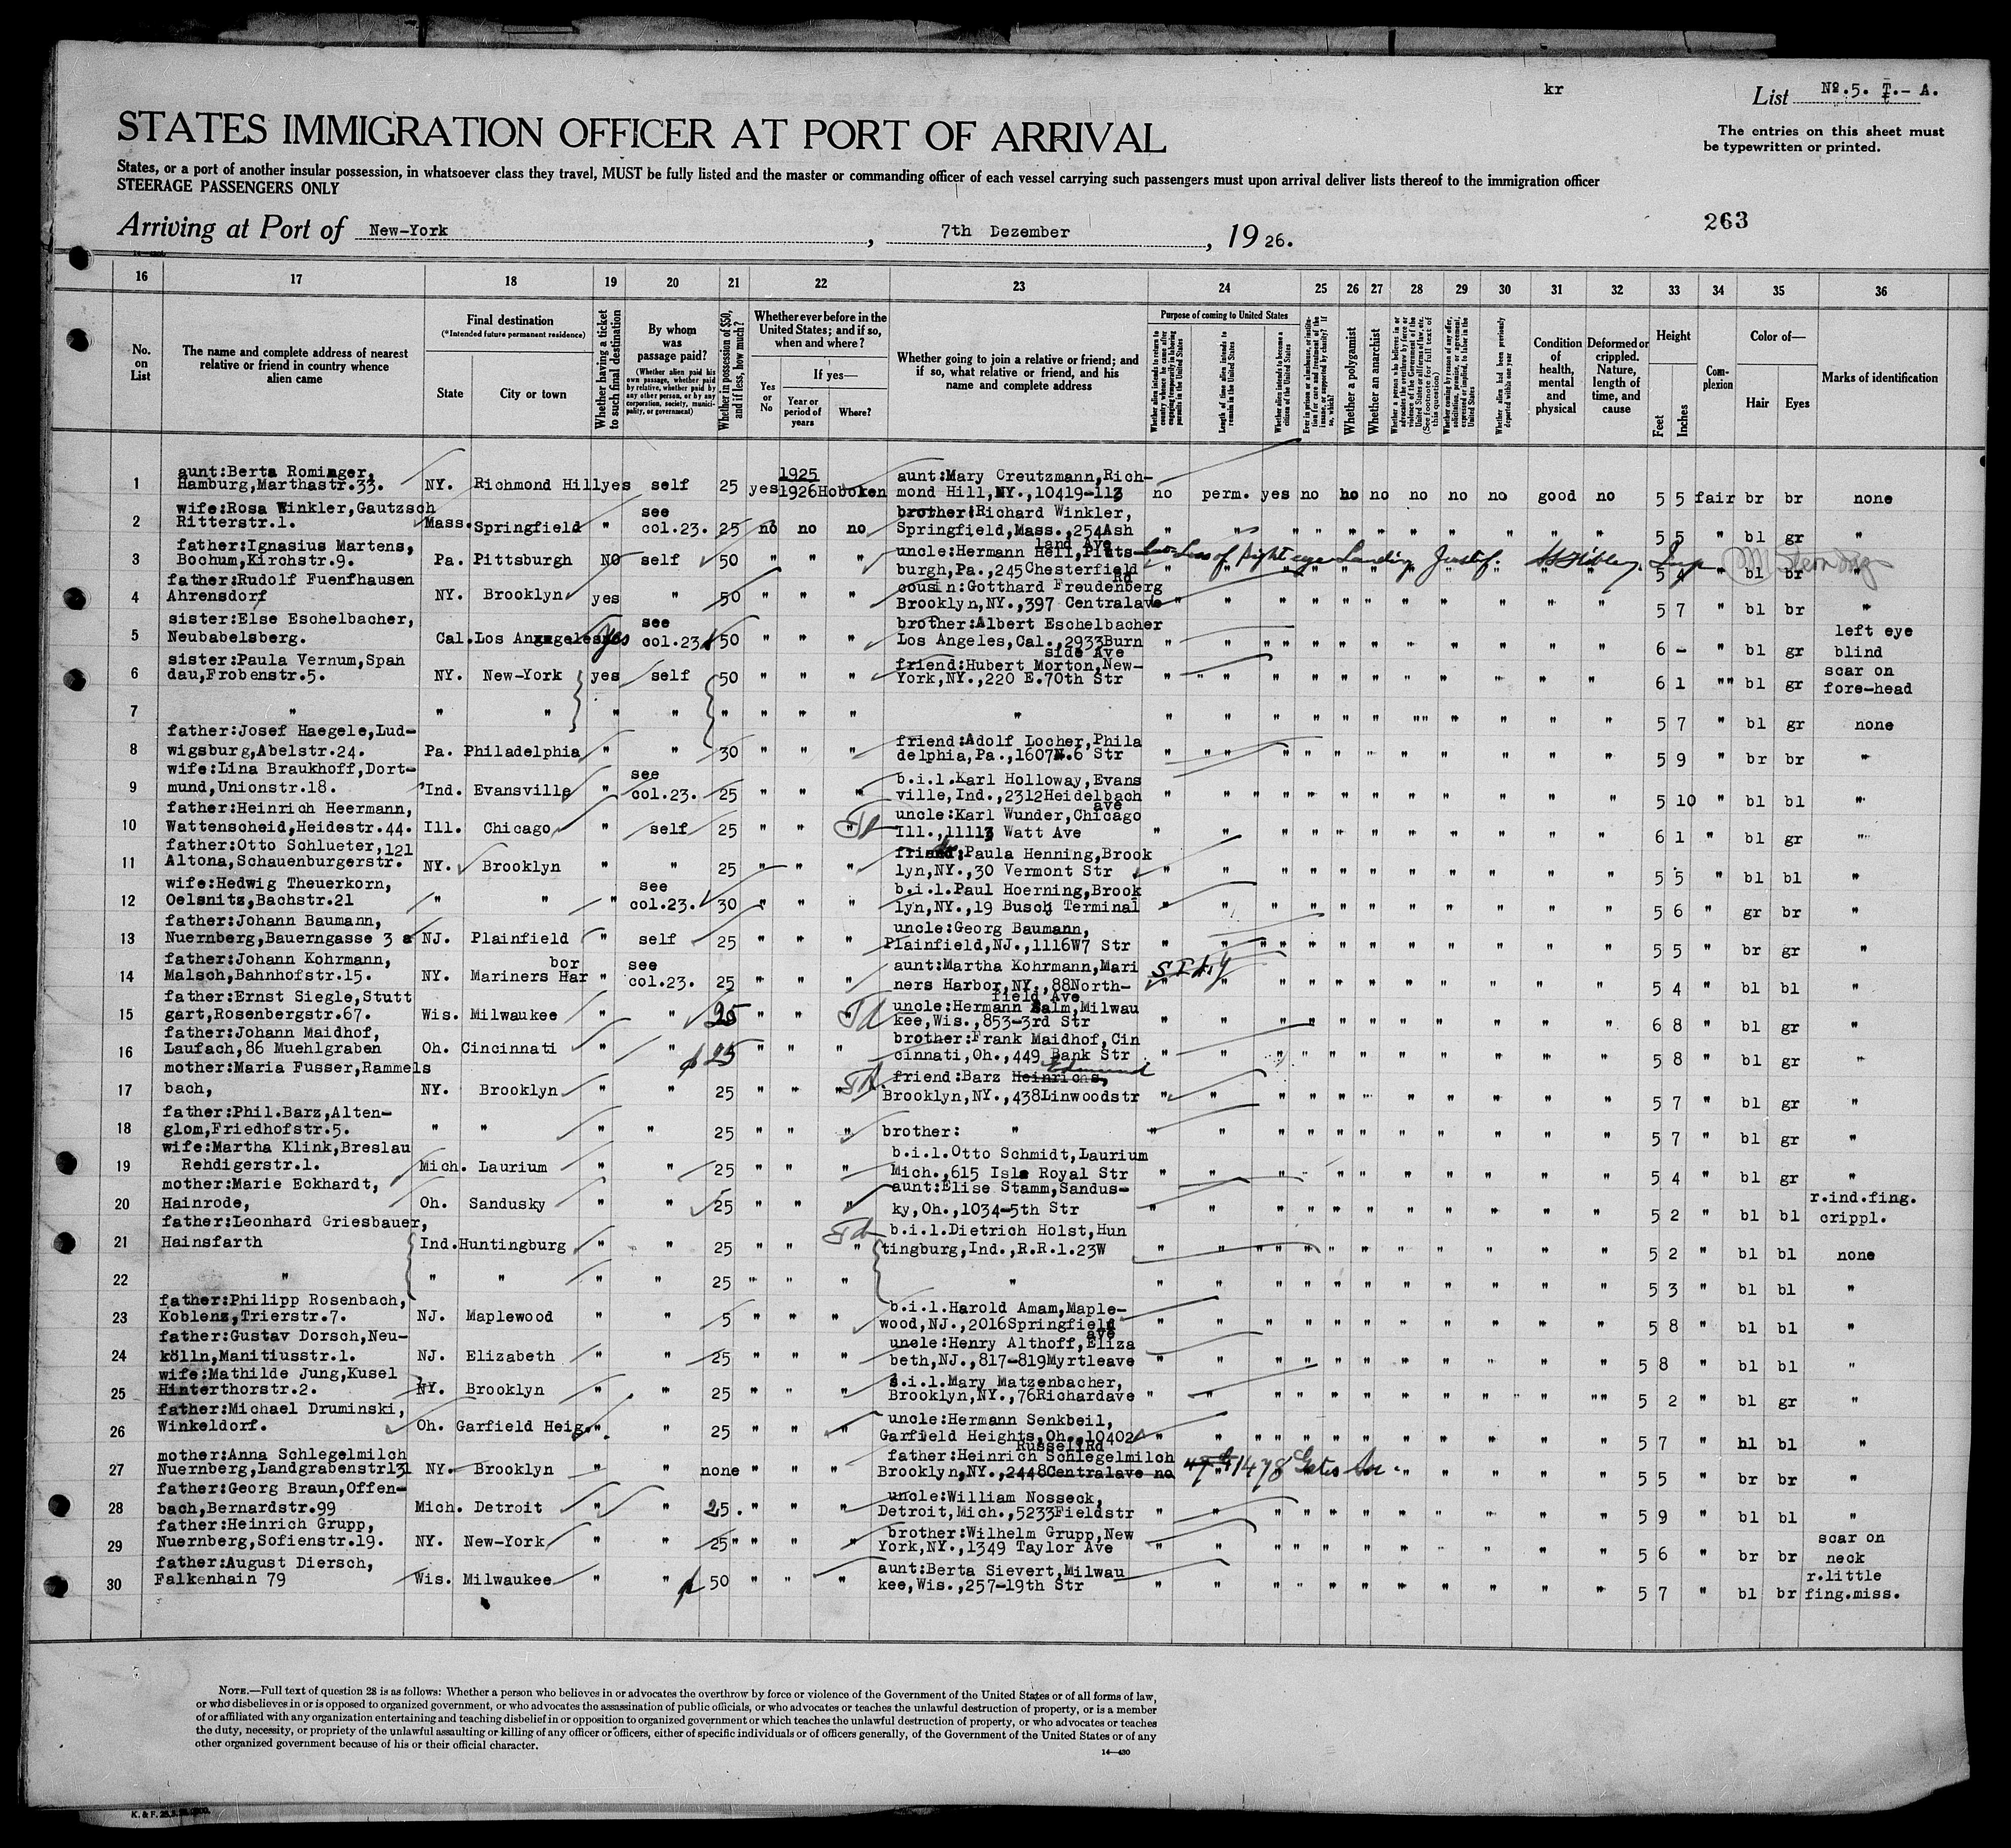 kr
List No. 5. T.- A.
The entries on this sheet must
be typewritten or printed.
STATES IMMIGRATION OFFICER AT PORT OF ARRIVAL
States, or a port of another insular possession, in whatsoever class they travel, MUST be fully listed and the master or commanding officer of each vessel carrying such passengers must upon arrival deliver lists thereof to the immigration officer
STEERAGE PASSENGERS ONLY
Arriving at Port of New-York, 7th Dezember, 1926.
263
16 17 18 19 20 21 22 23 24 25 26 27 28 29 30 31 32 33 34 35 36
No. on List
The name and complete address of nearest relative or friend in country whence alien came
Final destination
(*Intended future permanent residence)
State
City or town
Whether having a ticket to such final destination
By whom was passage paid?
(Whether alien paid his own passage, whether paid by relative, whether paid by any other person, or by any corporation, society, municipality, or government)
Whether in possession of $50, and if less, how much?
Whether ever before in the United States; and if so, when and where?
Yes or No
If yes—
Year or period of years
Where?
Whether going to join a relative or friend; and if so, what relative or friend, and his name and complete address
Purpose of coming to United States
Length of time alien intends to remain in the United States
Whether alien intends to become a citizen of the United States
Whether a polygamist
Whether an anarchist
Condition of health, mental and physical
Deformed or crippled. Nature, length of time, and cause
Height
Feet
Inches
Complexion
Color of—
Hair
Eyes
Marks of identification
1 aunt:Berta Rominger, Hamburg,Marthastr.33. NY. Richmond Hill yes self 25 yes 1925 1926 Hoboken aunt:Mary Creutzmann,Rich- mond Hill,NY.,10419-113 no perm. yes no no no no no no good no 5 5 fair br br none
2 wife:Rosa Winkler,Gautzsch Ritterstr.1. Mass. Springfield " see col.23. 25 no no no brother:Richard Winkler, Springfield,Mass.,254Ash land Ave " " " " " " " " " " " 5 5 " bl gr "
3 father:Ignasius Martens, Bochum,Kirchstr.9. Pa. Pittsburgh No self 50 " " " uncle:Hermann Hell,Pitts- burgh,Pa.,245 Chesterfield Rd Loss of right eye Landing Justif. Insp 5 4 " bl br "
4 father:Rudolf Fuenfhausen Ahrensdorf NY. Brooklyn yes " 50 " " " cousin:Gotthard Freudenberg Brooklyn,NY.,397 Centralave " " " " " " " " " " " 5 7 " bl br "
5 sister:Else Eschelbacher, Neubabelsberg. Cal. Los Angeles yes see col.23 50 " " " brother:Albert Eschelbacher Los Angeles,Cal.,2933Burn side Ave " " " " " " " " " " " 6 - " bl gr left eye blind
6 sister:Paula Vernum,Span dau,Frobenstr.5. NY. New-York yes self 50 " " " friend:Hubert Morton,New- York,NY.,220 E.70th Str " " " " " " " " " " " 6 1 " bl gr scar on fore-head
7 " " " " " " " " " " " " " " " " " " " " " 5 7 " bl gr none
8 father:Josef Haegele,Lud- wigsburg,Abelstr.24. Pa. Philadelphia " " 30 " " " friend:Adolf Locher,Phila delphia,Pa.,1607N.6 Str " " " " " " " " " " " 5 9 " br br "
9 wife:Lina Braukhoff,Dort- mund,Unionstr.18. Ind. Evansville " see col.23. 25 " " " b.i.l.Karl Holloway,Evans ville,Ind.,2312Heidelbach ave " " " " " " " " " " " 5 10 " bl bl "
10 father:Heinrich Heermann, Wattenscheid,Heidestr.44. Ill. Chicago " self 25 " " " uncle:Karl Wunder,Chicago Ill.,11113 Watt Ave " " " " " " " " " " " 6 1 " bl gr "
11 father:Otto Schlueter,121 Altona,Schauenburgerstr. NY. Brooklyn " " 25 " " " friend:Paula Henning,Brook lyn,NY.,30 Vermont Str " " " " " " " " " " " 5 5 " bl bl "
12 wife:Hedwig Theuerkorn, Oelsnitz,Bachstr.21 " " " see col.23. 30 " " " b.i.l.Paul Hoerning,Brook lyn,NY.,19 Busch Terminal " " " " " " " " " " " 5 6 " gr br "
13 father:Johann Baumann, Nuernberg,Bauerngasse 3 a NJ. Plainfield " self 25 " " " uncle:Georg Baumann, Plainfield,NJ.,1116W7 Str " " " " " " " " " " " 5 5 " br gr "
14 father:Johann Kohrmann, Malsch,Bahnhofstr.15. NY. Mariners Har bor " see col.23. 25 " " " aunt:Martha Kohrmann,Mari ners Harbor,NY.,88North- field Ave S.I. N.Y " " " " " " " " " " " 5 4 " bl bl "
15 father:Ernst Siegle,Stutt gart,Rosenbergstr.67. Wis. Milwaukee " " 25 " " " uncle:Hermann Salm,Milwau kee,Wis.,853-3rd Str " " " " " " " " " " " 6 8 " bl gr "
16 father:Johann Maidhof, Laufach,86 Muehlgraben Oh. Cincinnati " " 25 " " " brother:Frank Maidhof,Cin cinnati,Oh.,449 Bank Str " " " " " " " " " " " 5 8 " bl gr "
17 mother:Maria Fusser,Rammels bach, NY. Brooklyn " " 25 " " " friend:Barz Heinrichs, Edmund Brooklyn,NY.,438Linwoodstr " " " " " " " " " " " 5 7 " bl gr "
18 father:Phil.Barz,Alten- glom,Friedhofstr.5. " " " " 25 " " " brother: " " " " " " " " " " " " 5 7 " bl gr "
19 wife:Martha Klink,Breslau Rehdigerstr.1. Mich. Laurium " " 25 " " " b.i.l.Otto Schmidt,Laurium Mich.,615 Isle Royal Str " " " " " " " " " " " 5 4 " bl gr "
20 mother:Marie Eckhardt, Hainrode, Oh. Sandusky " " 25 " " " aunt:Elise Stamm,Sandus- ky,Oh.,1034-5th Str " " " " " " " " " " " 5 2 " bl bl r.ind.fing. crippl.
21 father:Leonhard Griesbauer, Hainsfarth Ind. Huntingburg " " 25 " " " b.i.l.Dietrich Holst,Hun tingburg,Ind.,R.R.1.23W " " " " " " " " " " " 5 2 " bl bl none
22 " " " " " 25 " " " " " " " " " " " " " " " 5 3 " bl bl "
23 father:Philipp Rosenbach, Koblenz,Trierstr.7. NJ. Maplewood " " 5 " " " b.i.l.Harold Amam,Maple- wood,NJ.,2016Springfield ave " " " " " " " " " " " 5 8 " bl bl "
24 father:Gustav Dorsch,Neu- kölln,Manitiusstr.1. NJ. Elizabeth " " 25 " " " uncle:Henry Althoff,Eliza beth,NJ.,817-819Myrtleave " " " " " " " " " " " 5 8 " bl bl "
25 wife:Mathilde Jung,Kusel Hinterthorstr.2. NY. Brooklyn " " 25 " " " s.i.l.Mary Matzenbacher, Brooklyn,NY.,76Richardave " " " " " " " " " " " 5 2 " bl gr "
26 father:Michael Druminski, Winkeldorf. Oh. Garfield Heig. " " 25 " " " uncle:Hermann Senkbeil, Garfield Heights,Oh.,10402 Russell Rd " " " " " " " " " " " 5 7 " bl bl "
27 mother:Anna Schlegelmilch Nuernberg,Landgrabenstr131 NY. Brooklyn " " none " " " father:Heinrich Schlegelmilch Brooklyn,NY.,2448Centralave no 1478 Gates Av. " " " 5 5 " br br "
28 father:Georg Braun,Offen- bach,Bernardstr.99 Mich. Detroit " " 25. " " " uncle:William Nosseck, Detroit,Mich.,5233Fieldstr " " " " " " " " " " " 5 9 " bl bl "
29 father:Heinrich Grupp, Nuernberg,Sofienstr.19. NY. New-York " " 25 " " " brother:Wilhelm Grupp,New York,NY.,1349 Taylor Ave " " " " " " " " " " " 5 6 " br br scar on neck
30 father:August Diersch, Falkenhain 79 Wis. Milwaukee " " 50 " " " aunt:Berta Sievert,Milwau kee,Wis.,257-19th Str " " " " " " " " " " " 5 7 " bl br r.little fing.miss.
NOTE.—Full text of question 28 is as follows: Whether a person who believes in or advocates the overthrow by force or violence of the Government of the United States or of all forms of law,
or who disbelieves in or is opposed to organized government, or who advocates the assassination of public officials, or who advocates or teaches the unlawful destruction of property, or is a member
of or affiliated with any organization entertaining and teaching disbelief in or opposition to organized government or which teaches the unlawful destruction of property, or who advocates or teaches
the duty, necessity, or propriety of the unlawful assaulting or killing of any officer or officers, either of specific individuals or of officers generally, of the Government of the United States or of any
other organized government because of his or their official character.
14—430